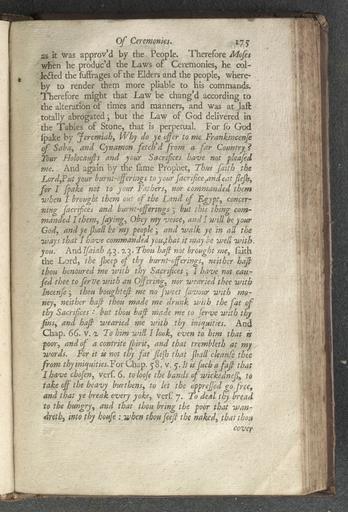 Of Ceremonies. 175
as it was approv'd by the People. Therefore Moses
when he produc'd the Laws of Ceremonies, he col-
lected the suffrages of the Elders and the people, where-
by to render them more pliable to his commands.
Therefore might that Law be chang'd according to
the alteration of times and manners, and was at last
totally abrogated; but the Law of God delivered in
the Tables of Stone, that is perpetual. For so God
spake by Jeremiah, Why do ye offer to me Frankincense
of Saba, and Cynamon fetch'd from a far Country?
Your Holocausts and your Sacrifices have not pleased
me. And again by the same Prophet, Thus saith the
Lord, Put your burnt-offerings to your sacrifice, and eat flesh,
for I spake not to your Fathers, nor commanded them
when I brought them out of the Land of Egypt, concer-
ning sacrifices and burnt-offerings; but this thing com-
manded I them, saying, Obey my voice, and I will be your
God, and ye shall be my people; and walk ye in all the
ways that I have commanded you, that it may be well with
you. And Isaiah 43. 23. Thou hast not brought me, saith
the Lord, the sheep of thy burnt-offerings, neither hast
thou honoured me with thy Sacrifices; I have not cau-
sed thee to serve with an Offering, nor wearied thee with
Incense; thou boughtest me no sweet savour with mo-
ney, neither hast thou made me drunk with the fat of
thy Sacrifices: but thou hast made me to serve with thy
sins, and hast wearied me with thy iniquities. And
Chap. 66. v. 2 To him will I look, even to him that is
poor, and of a contrite spirit, and that trembleth at my
words. For it is not thy fat flesh that shall cleanse thee
from thy iniquities. For Chap. 58. v. 5. It is such a fast that
I have chosen, vers. 6. to loose the bands of wickedness, to
take off the heavy burthens, to let the oppressed go free,
and that ye break every yoke, vers. 7. To deal thy bread
to the hungry, and that thou bring the poor that wan-
dreth, into thy house: when thou seest the naked, that thou
cover